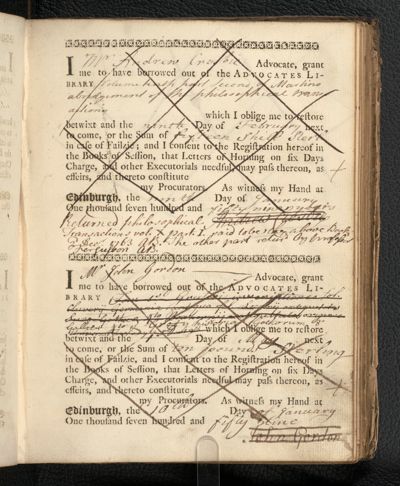 I Mr. Andrew Crosbie Advocate, grant
me to have borrowed out of the ADVOCATES LI-
BRARY Volume 6th part second of Martins
abridgement of the philosophical trans
actions
which I oblige me to restore
betwixt and the ninth Day of February next
to come, or the Sum of fifteen Shill: Ster:
in case of Failzie; and I consent to the Registration hereof in
the Books of Session, that Letters of Horning on six Days
Charge, and other Executorials needful may pass thereon, as
effeirs, and thereto constitute
my Procurators. As witness my Hand at
Edinburgh, the ninth Day of January
One thousand seven hundred and fifty nine years
Returned philosophical
Transactions vol: 6 part 1. paid to be
Decr. 1763 the other part returd by
I Mr John Gordon Advocate, grant
me to have borrowed out of the ADVOCATES LI-
BRARY
which I oblige me to restore
betwixt and the Day of May next
to come, or the Sum of ten pounds Sterling
in case of Failzie, and I consent to the Registration hereof in
the Books of Session, that Letters of Horning on six Days
Charge, and other Executorials needful may pass thereon, as
effeirs, and thereto constitute
my Procurators. As witness my Hand at
Edinburgh, the 10th Day of January
One thousand seven hundred and fifty nine
John Gordon